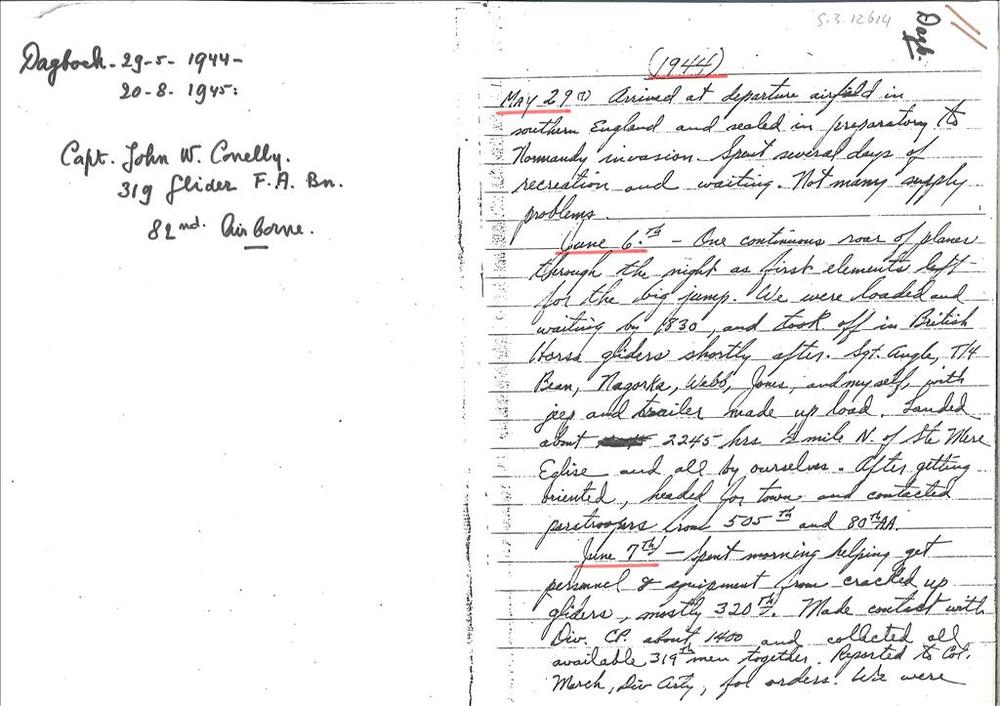 Dagboek - 29-5-1944-
20-8-1945:
Capt. John W. Conelly.
319 Glider F.A. Bn.
82nd. Airborne.
S.3.12614
Dagb.
(1944)
May 29th Arrived at departure airfield in
southern England and sealed in preparatory to
Normandy invasion. Spent several days of
recreation and waiting. Not many supply
problems.
June 6.th - One continuous roar of planes
through the night as first elements left
for the big jump. We were loaded and
waiting by 1830, and took off in British
Horsa gliders shortly after. Sgt. Angle, T/4
Bean, Nagorka, Webb, Jones, and myself, with
jeep and trailer made up load. Landed
about 2245 hrs ½ mile N. of Ste Mere
Eglise and all by ourselves. After getting
oriented, headed for town and contacted
paratroopers from 505th and 80th AA.
June 7th - Spent morning helping get
personnel & equipment from cracked up
gliders, mostly 320th. Made contact with
Div. CP. about 1400 and collected all
available 319th men together. Reported to Col.
March, Div Arty, for orders. We were